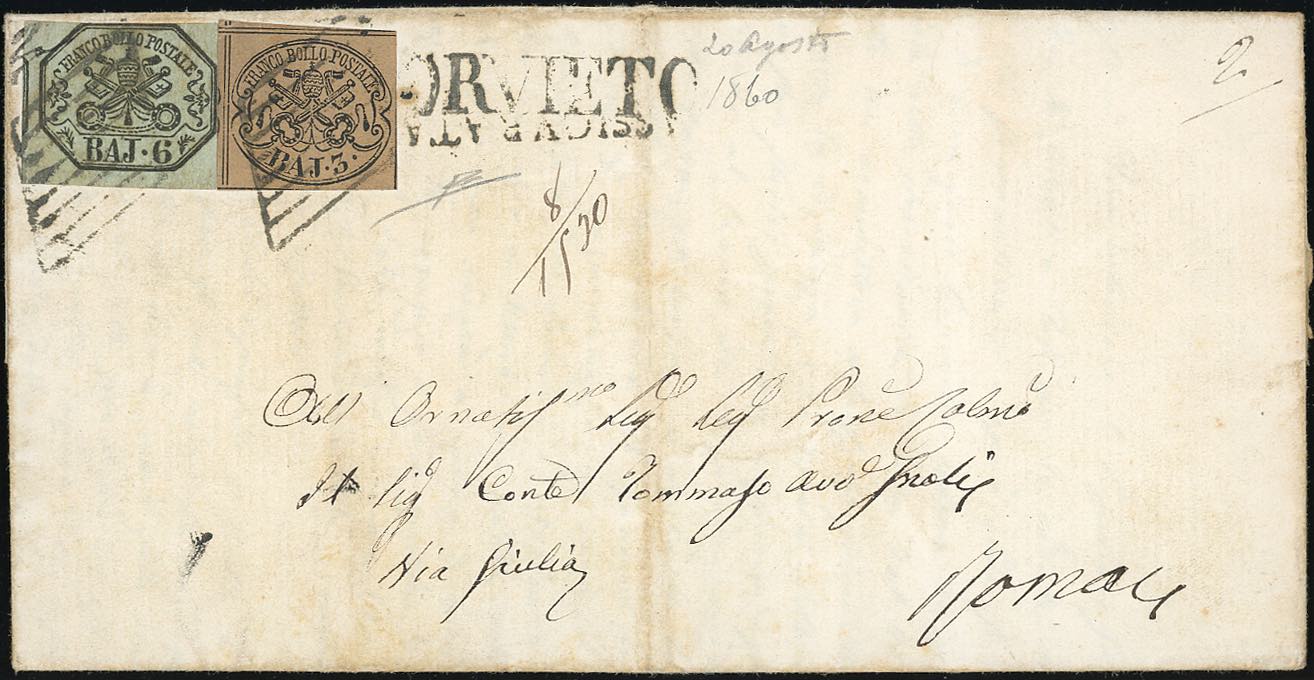 FRANCO BOLLO POSTALE
BAJ·6
FRANCO BOLLO POSTALE
BAJ·3·
ORVIETO
ASSICVRATA
20 Agosto
1860
2
8/1530
All' Ornatiss.mo Sig.e Sig.
Il Sig. Conte Tommaso Avv. Gnoli
Via Giulia
Roma